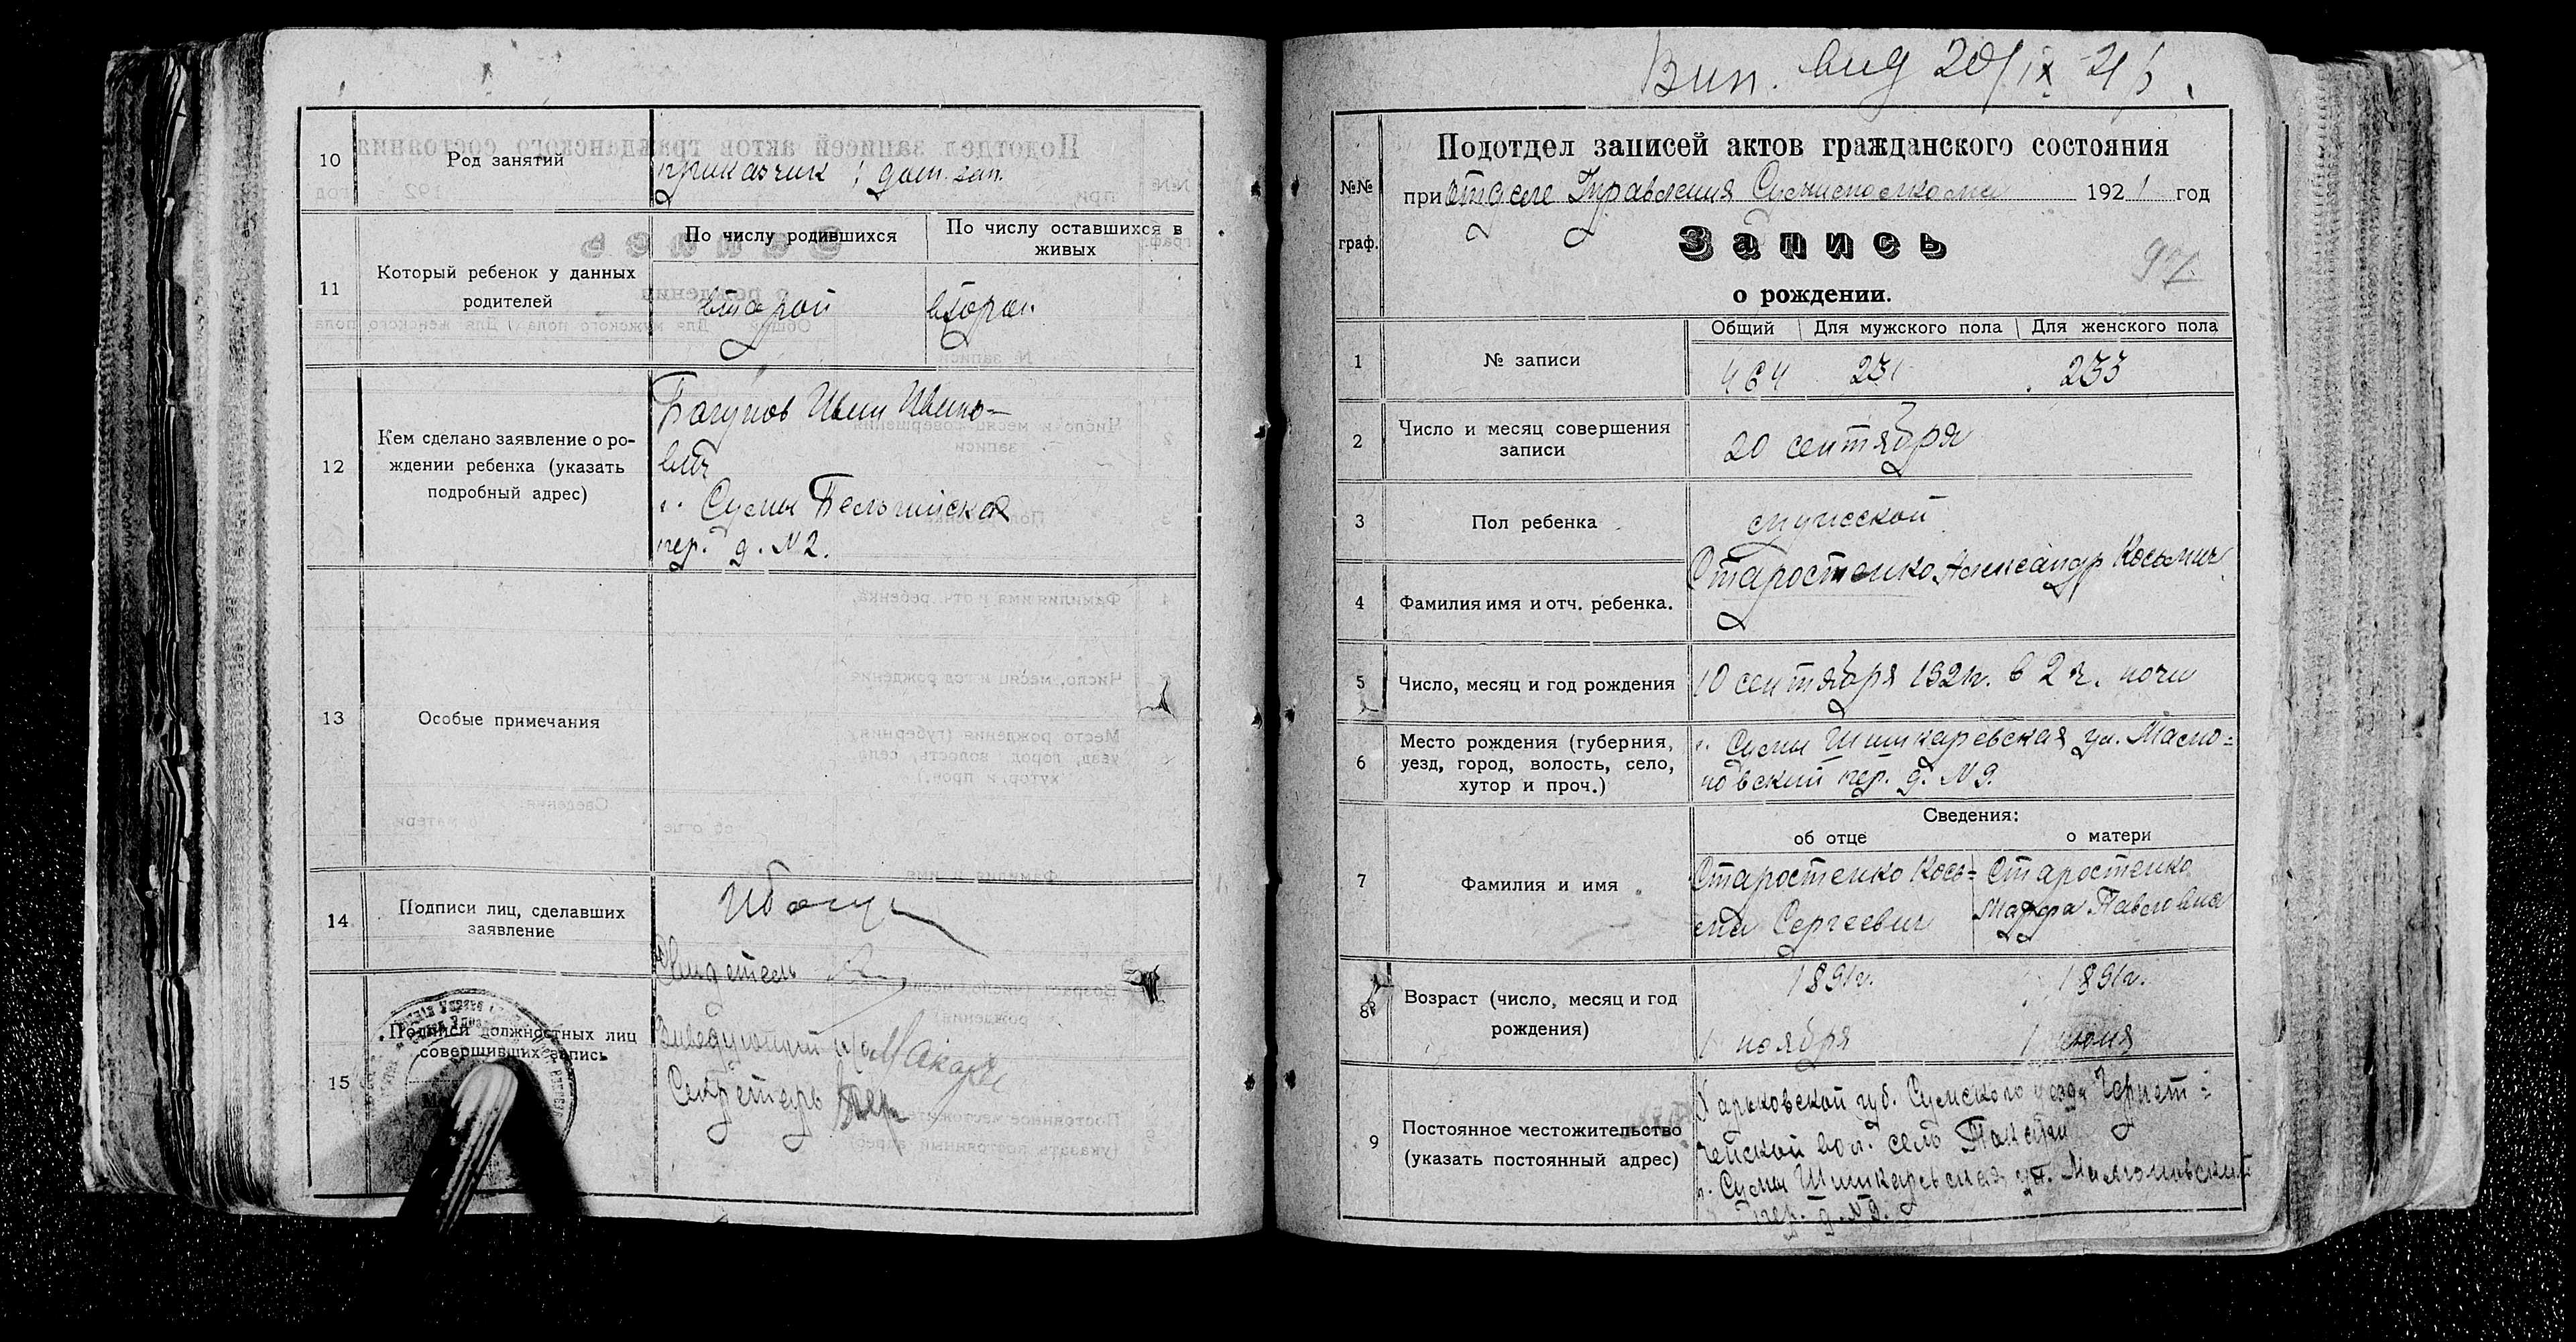 10
Род занятий
приказчик ; дом. зан.
11
Который ребенок у данных
родителей
По числу родившихся
По числу оставшихся в
живых
второй
второй
12
Кем сделано заявление о ро-
ждении ребенка (указать
подробный адрес)
Иван Ивано-
вич
г. Сумы Бельгийская
пер. д. №2.
13
Особые примечания
14
Подписи лиц, сделавших
заявление
Свидетель
15
Подписи должностных лиц
совершивших запись
Заведующий
Секретарь
вид 20/IX 21
№№
граф.
Подотдел записей актов гражданского состояния
при отделе Управления 1921 год
Запись
97
о рождении.
1
№ записи
Общий
Для мужского пола
Для женского пола
464
231
233
2
Число и месяц совершения
записи
20 сентября
3
Пол ребенка
мужской
4
Фамилия имя и отч. ребенка.
Старостенко Александр Косьмич
5
Число, месяц и год рождения
10 сентября 1921г. в 2 ч. ночи
6
Место рождения (губерния,
уезд, город, волость, село,
хутор и проч.)
г. Сумы Шишкаревская ул.
пер. д. №9.
Сведения:
об отце
о матери
7
Фамилия и имя
Старостенко Кось=
ма Сергеевич
Старостенко
Марфа Павловна
8
Возраст (число, месяц и год
рождения)
1891г.
1 ноября
1891г.
1 июня
9
Постоянное местожительство
(указать постоянный адрес)
Харьковской губ. Сумского уезда
вол. село
г. Сумы Шишкаревская ул.
пер. д. №9.